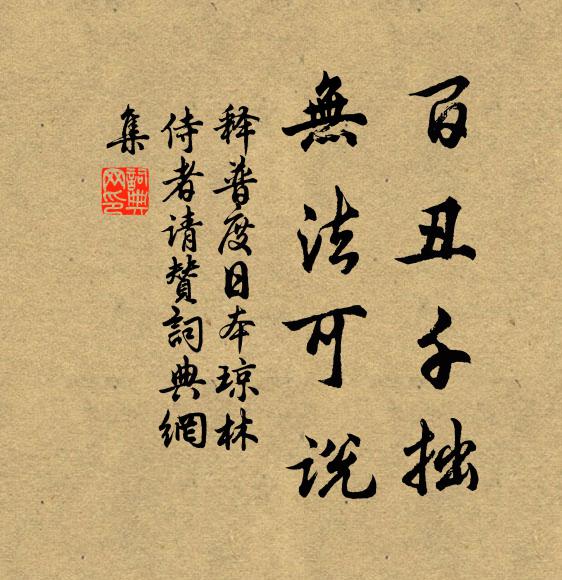 百丑千拙
無法可說
释普度日本琼林
侍者请赞詞典網
集
詞典
网印